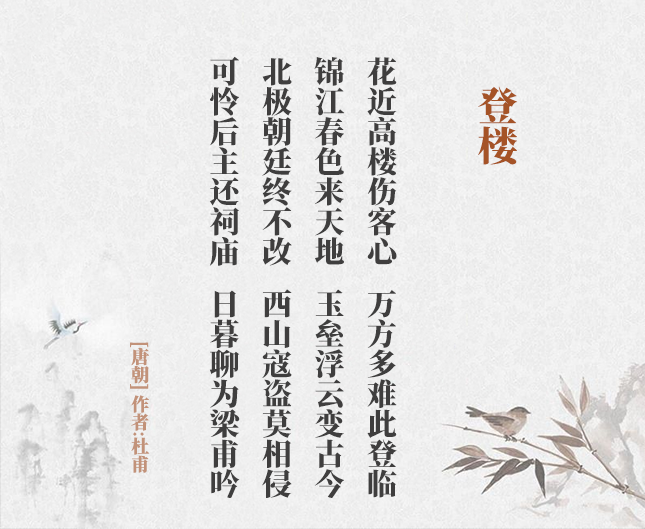 登楼
花近高楼伤客心
万方多难此登临
锦江春色来天地
玉垒浮云变古今
北极朝廷终不改
西山寇盗莫相侵
可怜后主还祠庙
日暮聊为梁甫吟
[唐朝] 作者:杜甫